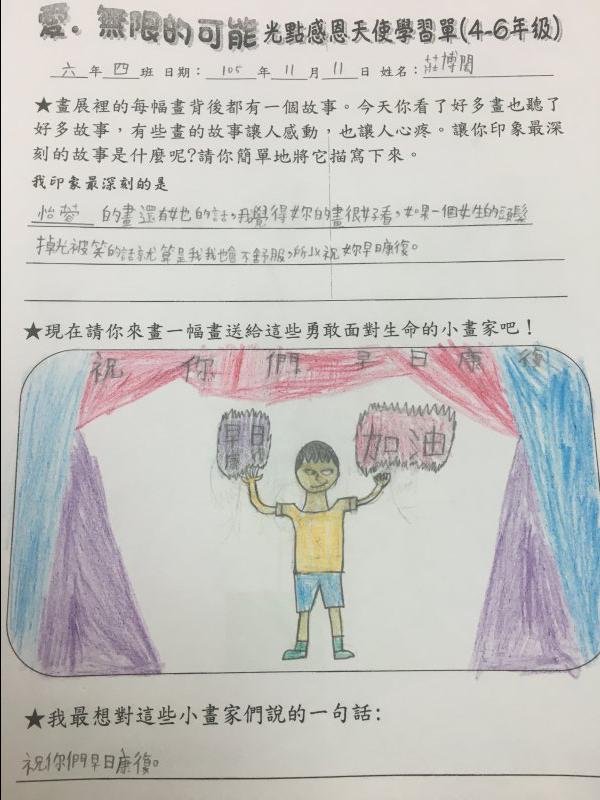 愛．無限的可能 光點感恩天使學習單(4-6年級)
六 年 四 班 日期： 105 年 11 月 11 日 姓名：莊博閎
★畫展裡的每幅畫背後都有一個故事。今天你看了好多畫也聽了
好多故事，有些畫的故事讓人感動，也讓人心疼。讓你印象最深
刻的故事是什麼呢?請你簡單地將它描寫下來。
我印象最深刻的是
怡蓉 的畫還有她的話，我覺得妳的畫很好看，如果一個女生的頭髮
掉光被笑的話就算是我我也會不舒服，所以祝妳早日康復。
★現在請你來畫一幅畫送給這些勇敢面對生命的小畫家吧！
祝你們早日康復
早日
康復
加油
★我最想對這些小畫家們說的一句話：
祝你們早日康復。